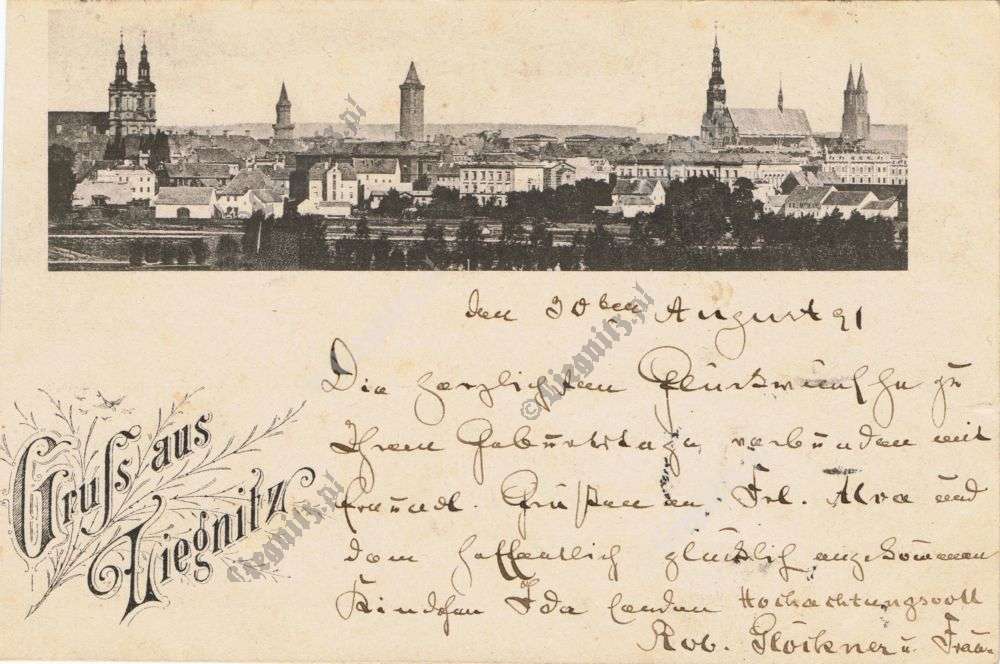 den 30ten August 91
Die herzlichsten Glückwünsche zu
Ihrem Geburtstage verbunden mit
freundl. Grüßen an Frl. und
dem hoffentlich glücklich angekommenen
Kindchen Ida senden Hochachtungsvoll
Rob. Glöckner u. Frau.
Gruss aus
Liegnitz
© Liegnitz.pl
Liegnitz.pl
Liegnitz.pl